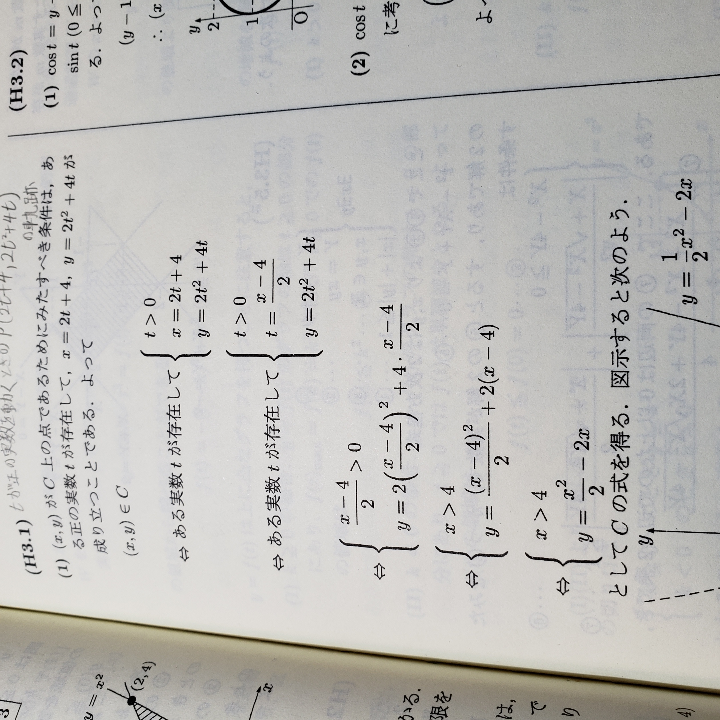 (H3.1) tが正の実数を動くときの P(2t+4, 2t²+4t)
の軌跡
(1) (x, y) が C 上の点であるためにみたすべき条件は，あ
る正の実数 t が存在して，x = 2t + 4, y = 2t² + 4t が
成り立つことである．よって
(x, y) ∈ C
⇔ ある実数 t が存在して { t > 0
x = 2t + 4
y = 2t² + 4t
⇔ ある実数 t が存在して { t > 0
t = (x − 4)/2
y = 2t² + 4t
⇔ { (x − 4)/2 > 0
y = 2((x − 4)/2)² + 4 · (x − 4)/2
⇔ { x > 4
y = (x − 4)²/2 + 2(x − 4)
⇔ { x > 4
y = x²/2 − 2x
として C の式を得る．図示すると次のよう．
y
y = 1/2 x² − 2x
(H3.2)
(1) cos t = y −
sin t (0 ≤
る．よって
(y − 1
∴ (x
y
2
1
O
(2) cos t
に考
よ
y = x²
(2, 4)
x
かる．
限を
は，
で
り
4)